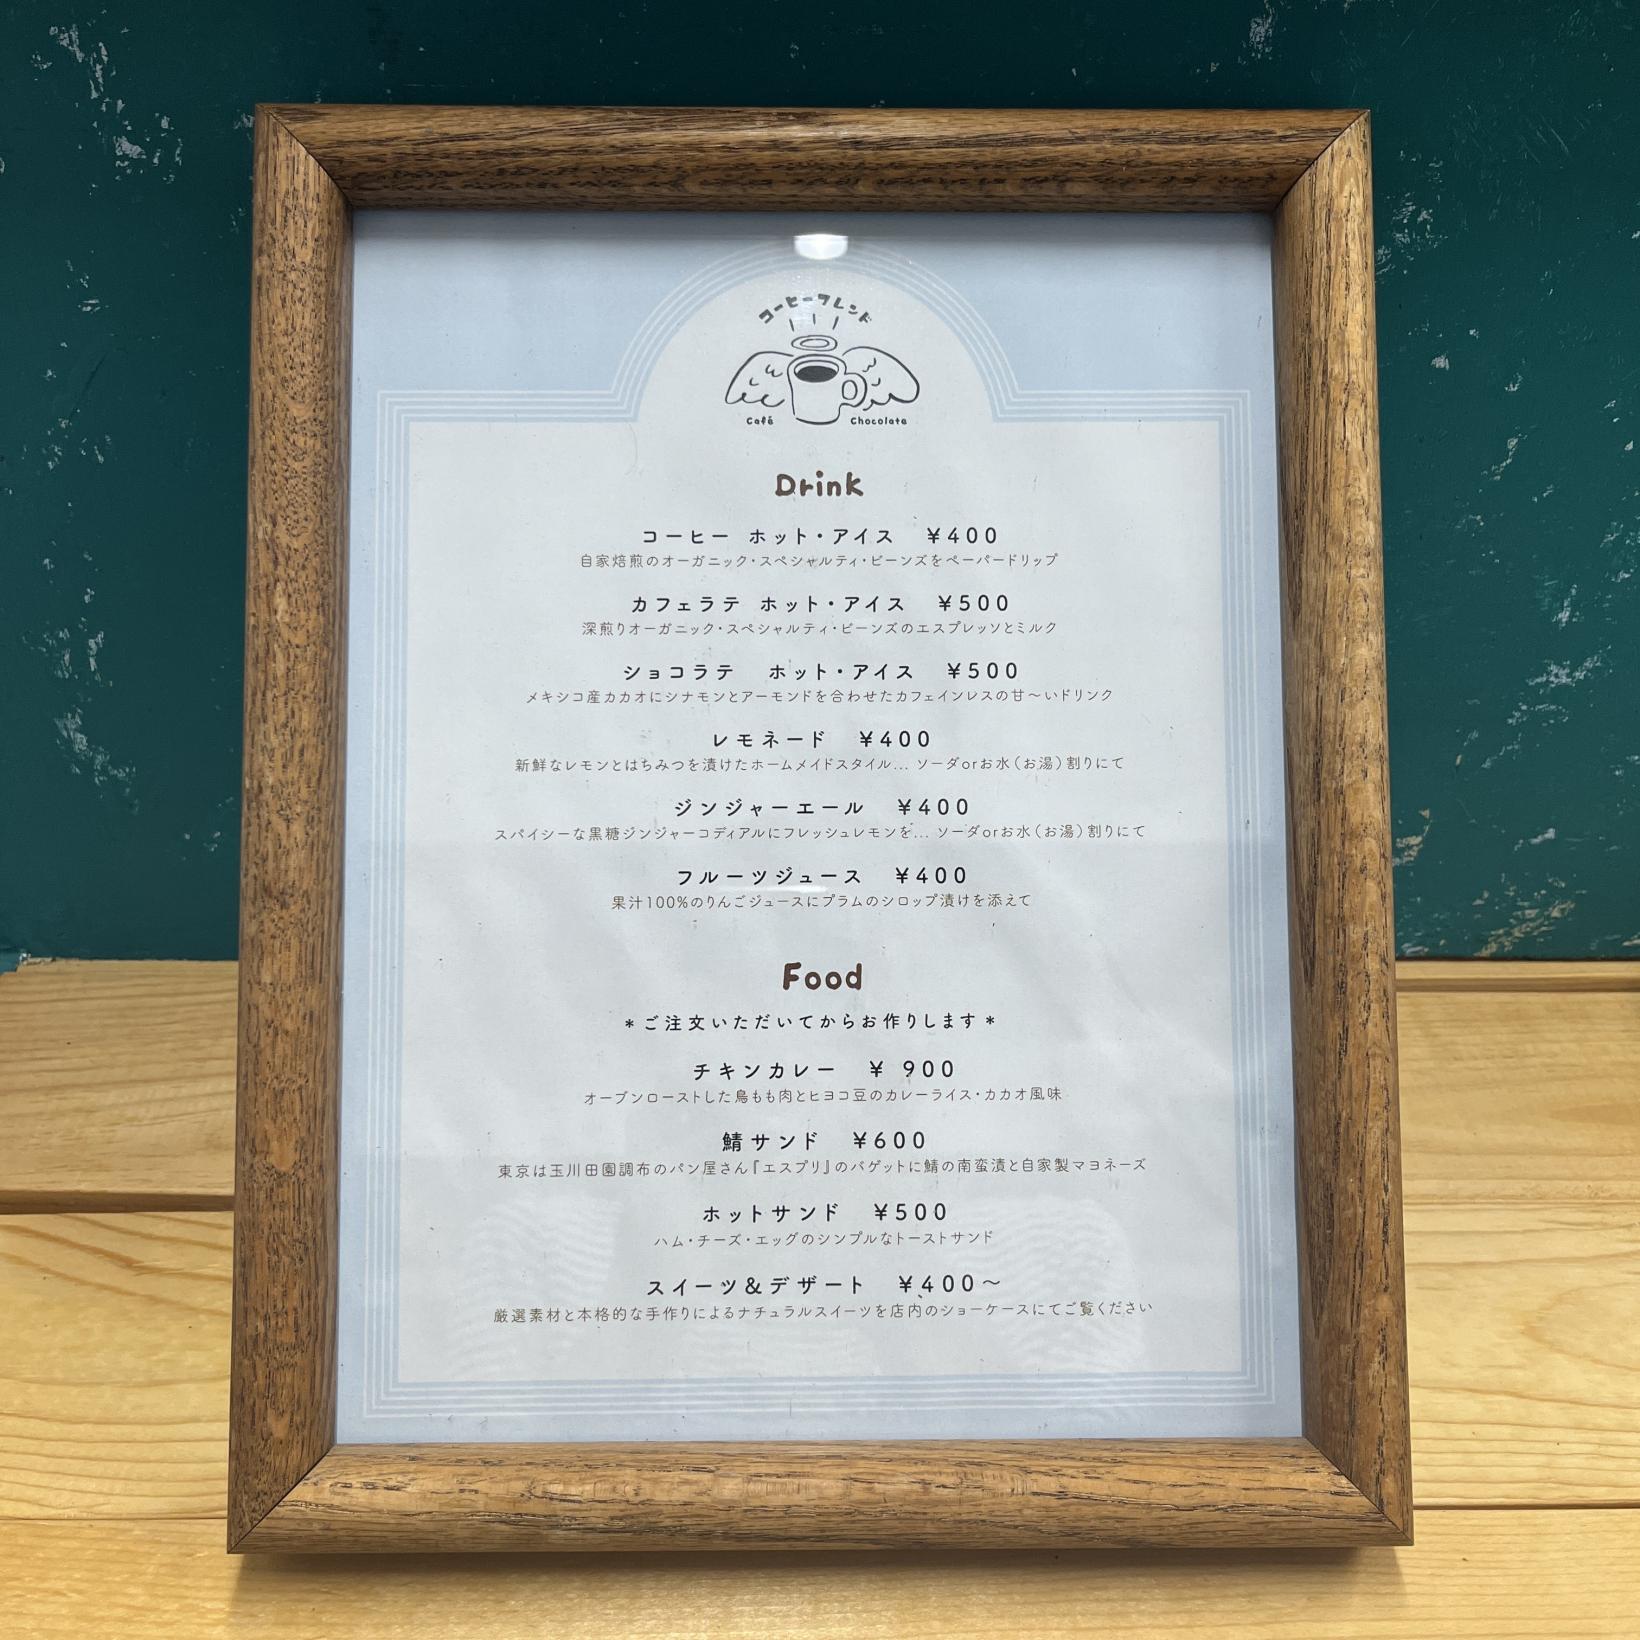 コーヒーフレンド
Café Chocolate
Drink
コーヒー ホット・アイス ¥400
自家焙煎のオーガニック・スペシャルティ・ビーンズをペーパードリップ
カフェラテ ホット・アイス ¥500
深煎りオーガニック・スペシャルティ・ビーンズのエスプレッソとミルク
ショコラテ ホット・アイス ¥500
メキシコ産カカオにシナモンとアーモンドを合わせたカフェインレスの甘〜いドリンク
レモネード ¥400
新鮮なレモンとはちみつを漬けたホームメイドスタイル... ソーダorお水(お湯)割りにて
ジンジャーエール ¥400
スパイシーな黒糖ジンジャーコディアルにフレッシュレモンを... ソーダorお水(お湯)割りにて
フルーツジュース ¥400
果汁100%のりんごジュースにプラムのシロップ漬けを添えて
Food
*ご注文いただいてからお作りします*
チキンカレー ¥ 900
オーブンローストした鳥もも肉とヒヨコ豆のカレーライス・カカオ風味
鯖サンド ¥600
東京は玉川田園調布のパン屋さん『エスプリ』のバゲットに鯖の南蛮漬と自家製マヨネーズ
ホットサンド ¥500
ハム・チーズ・エッグのシンプルなトーストサンド
スイーツ&デザート ¥400〜
厳選素材と本格的な手作りによるナチュラルスイーツを店内のショーケースにてご覧ください